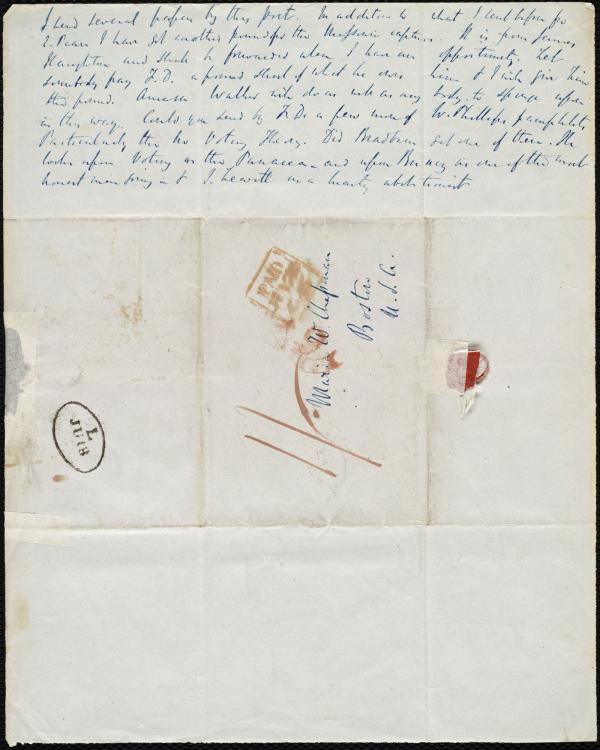 I send several papers by this post. In addition to what I sent before for
E. Pease I have got another pound for the Messair captives. It is from James
Haughton and shall be forwarded when I have an opportunity. Let
somebody pay F.D. a pound short of what he owes him & I will give him
this pound. Amasa Walker will do as well as any body to
in this way. Could you send by F.D. a few more of W. Phillips pamphlets
Particularly the No Voting Theory. Did Bradburn get one of them. He
looks upon Voting as the Panacea - and upon as one of the most
honest men living - & J. Leavitt as a hearty abolitionist
PAID
Maria W. Chapman
Boston
U.S.A.
11
L
JU 18